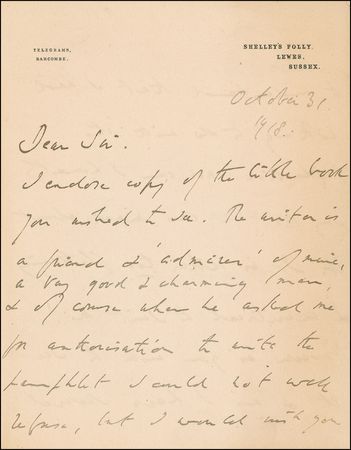 TELEGRAMS,
BARCOMBE.
SHELLEY'S FOLLY,
LEWES,
SUSSEX.
October 31
1918.
Dear Sir.
I enclose copy of the little book
you wished to see. The writer is
a friend & 'admirer' of mine,
a very good & charming man,
& of course when he asked me
for authorisation to write the
pamphlet I could not well
refuse, but I would wish you